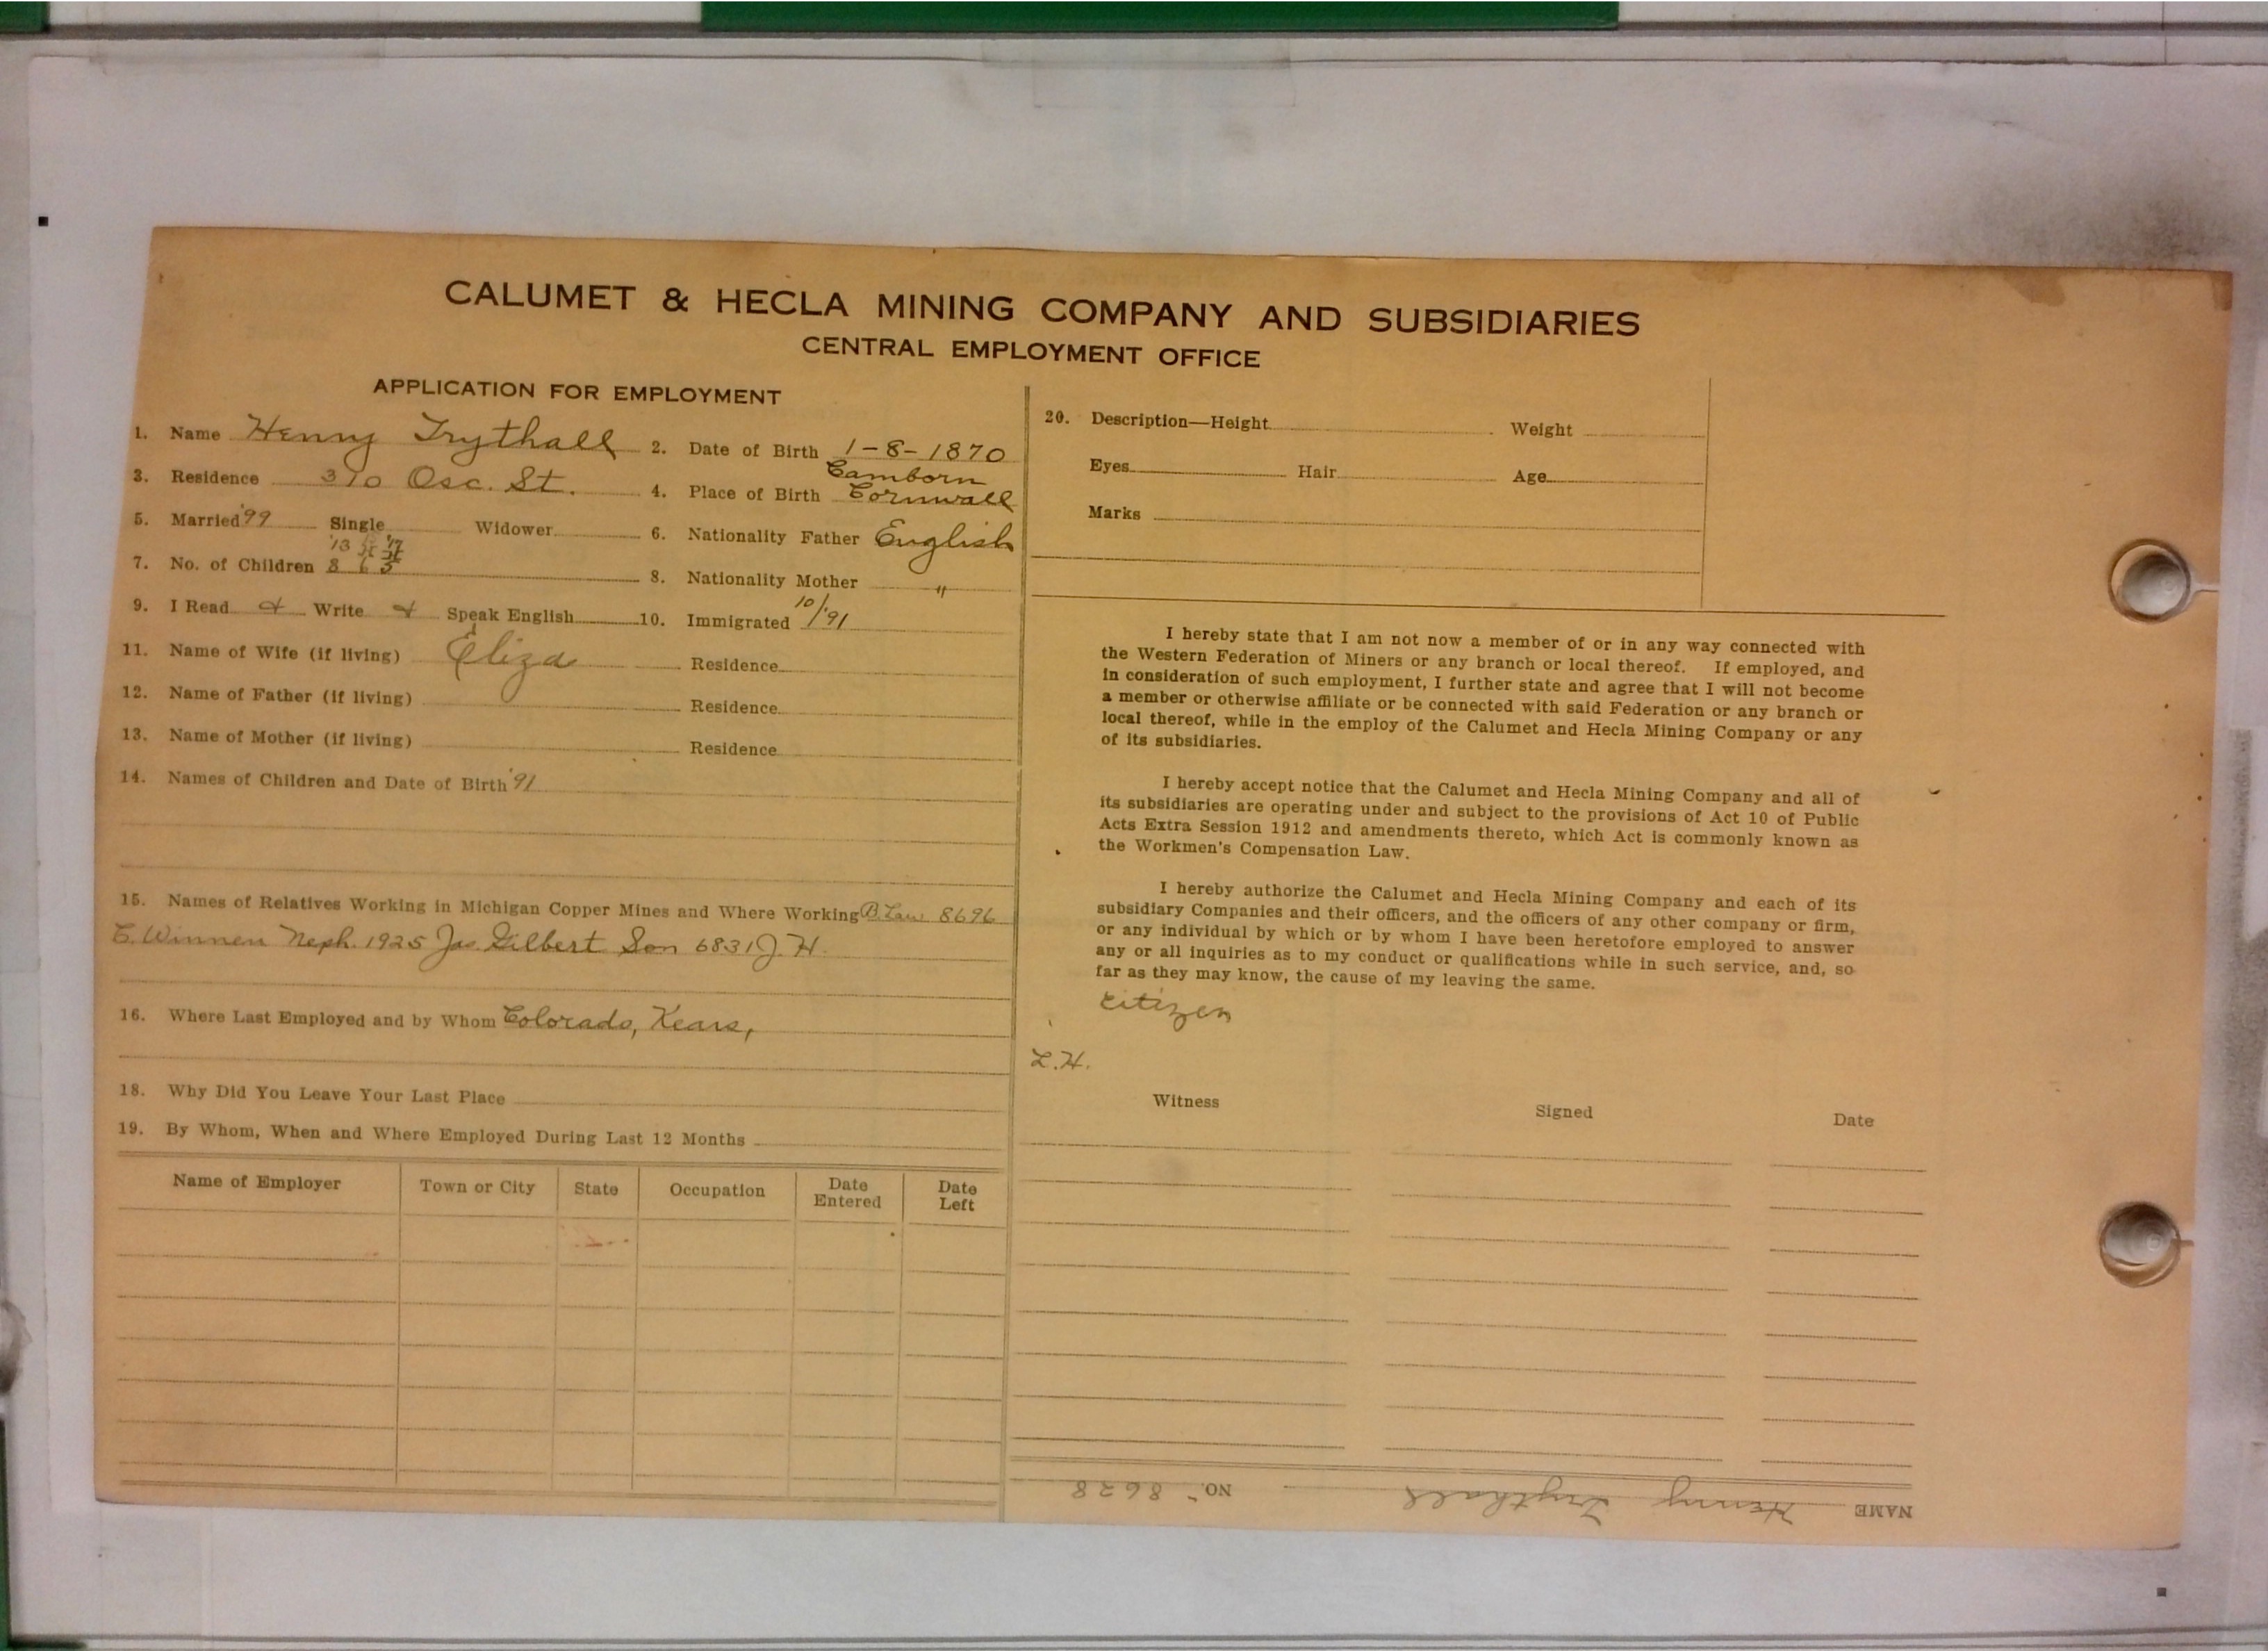 CALUMET & HECLA MINING COMPANY AND SUBSIDIARIES
CENTRAL EMPLOYMENT OFFICE
APPLICATION FOR EMPLOYMENT
1. Name Henry Trythall 2. Date of Birth 1-8-1870
3. Residence 370 Osc. St. 4. Place of Birth Camborn Cornwall
5. Married '99 Single Widower 6. Nationality Father English
'13 '17
7. No. of Children 8 6 5 8. Nationality Mother "
9. I Read & Write & Speak English 10. Immigrated 10/'91
11. Name of Wife (if living) Eliza Residence
12. Name of Father (if living) Residence
13. Name of Mother (if living) Residence
14. Names of Children and Date of Birth '91
15. Names of Relatives Working in Michigan Copper Mines and Where Working B. Law 8696
C. Winnen Neph. 1925 Jas Gilbert Son 6831 J. H.
16. Where Last Employed and by Whom Colorado, Kears,
18. Why Did You Leave Your Last Place
19. By Whom, When and Where Employed During Last 12 Months
Name of Employer Town or City State Occupation Date Entered Date Left
20. Description—Height Weight
Eyes Hair Age
Marks
I hereby state that I am not now a member of or in any way connected with
the Western Federation of Miners or any branch or local thereof. If employed, and
in consideration of such employment, I further state and agree that I will not become
a member or otherwise affiliate or be connected with said Federation or any branch or
local thereof, while in the employ of the Calumet and Hecla Mining Company or any
of its subsidiaries.
I hereby accept notice that the Calumet and Hecla Mining Company and all of
its subsidiaries are operating under and subject to the provisions of Act 10 of Public
Acts Extra Session 1912 and amendments thereto, which Act is commonly known as
the Workmen's Compensation Law.
I hereby authorize the Calumet and Hecla Mining Company and each of its
subsidiary Companies and their officers, and the officers of any other company or firm,
or any individual by which or by whom I have been heretofore employed to answer
any or all inquiries as to my conduct or qualifications while in such service, and, so
far as they may know, the cause of my leaving the same.
Citizen
L.H.
Witness Signed Date
NAME Henry Trythall NO. 8628